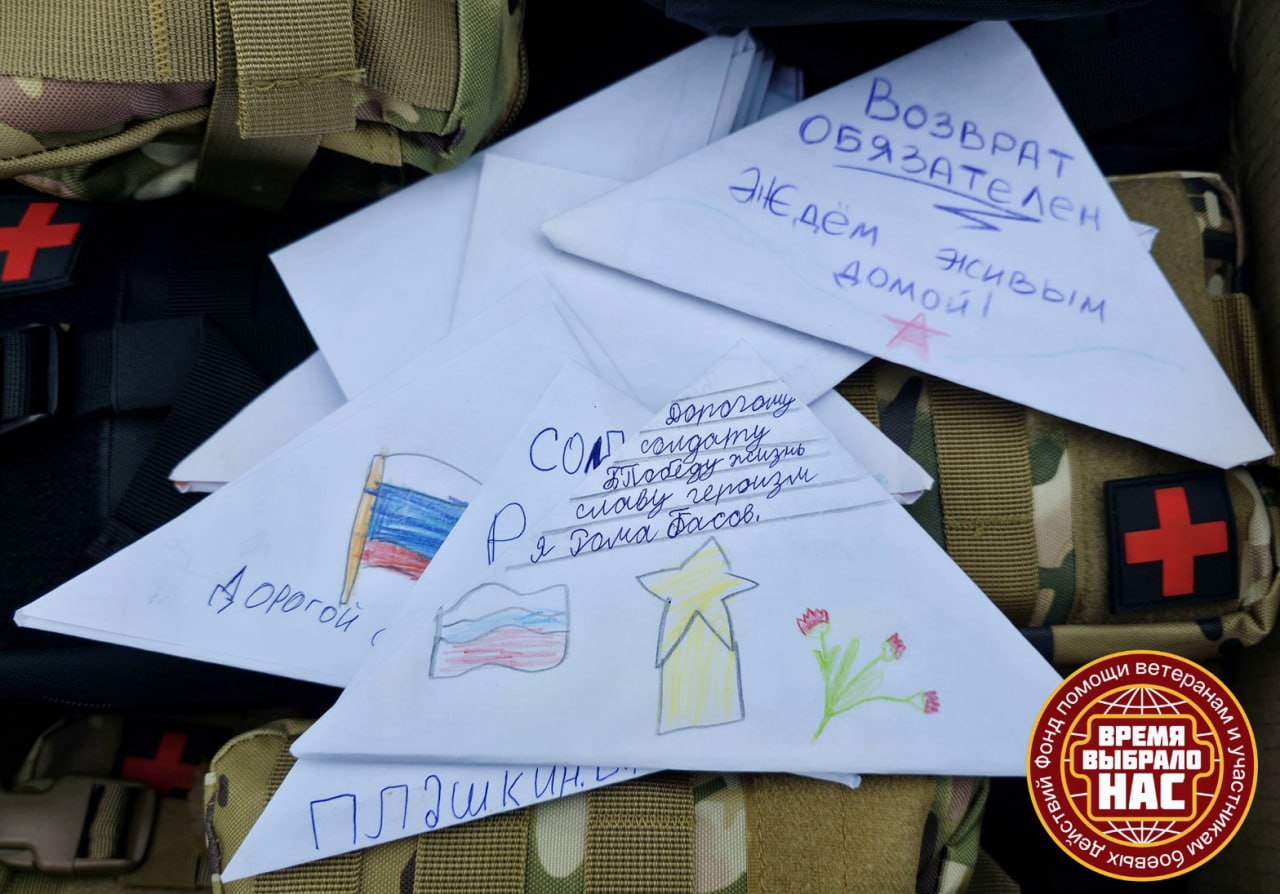 ВОЗВРАТ
ОБЯЗАТЕЛЕН
ЖДЁМ ЖИВЫМ
ДОМОЙ!
Дорогому
солдату
Победу жизнь
славу героизм
я Рома Басов.
СОЛ
Р
ДОРОГОЙ С
Фонд помощи ветеранам и участникам боевых действий
ВРЕМЯ
ВЫБРАЛО
НАС